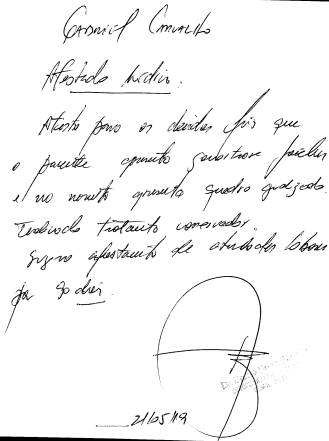 Gabriel Carvalho
Atestado médico.
Atesto para os devidos fins que
o paciente apresenta
e no momento apresenta quadro
Indicado tratamento conservador.
Sugiro afastamento de atividades laborais
por 90 dias.
21/05/19